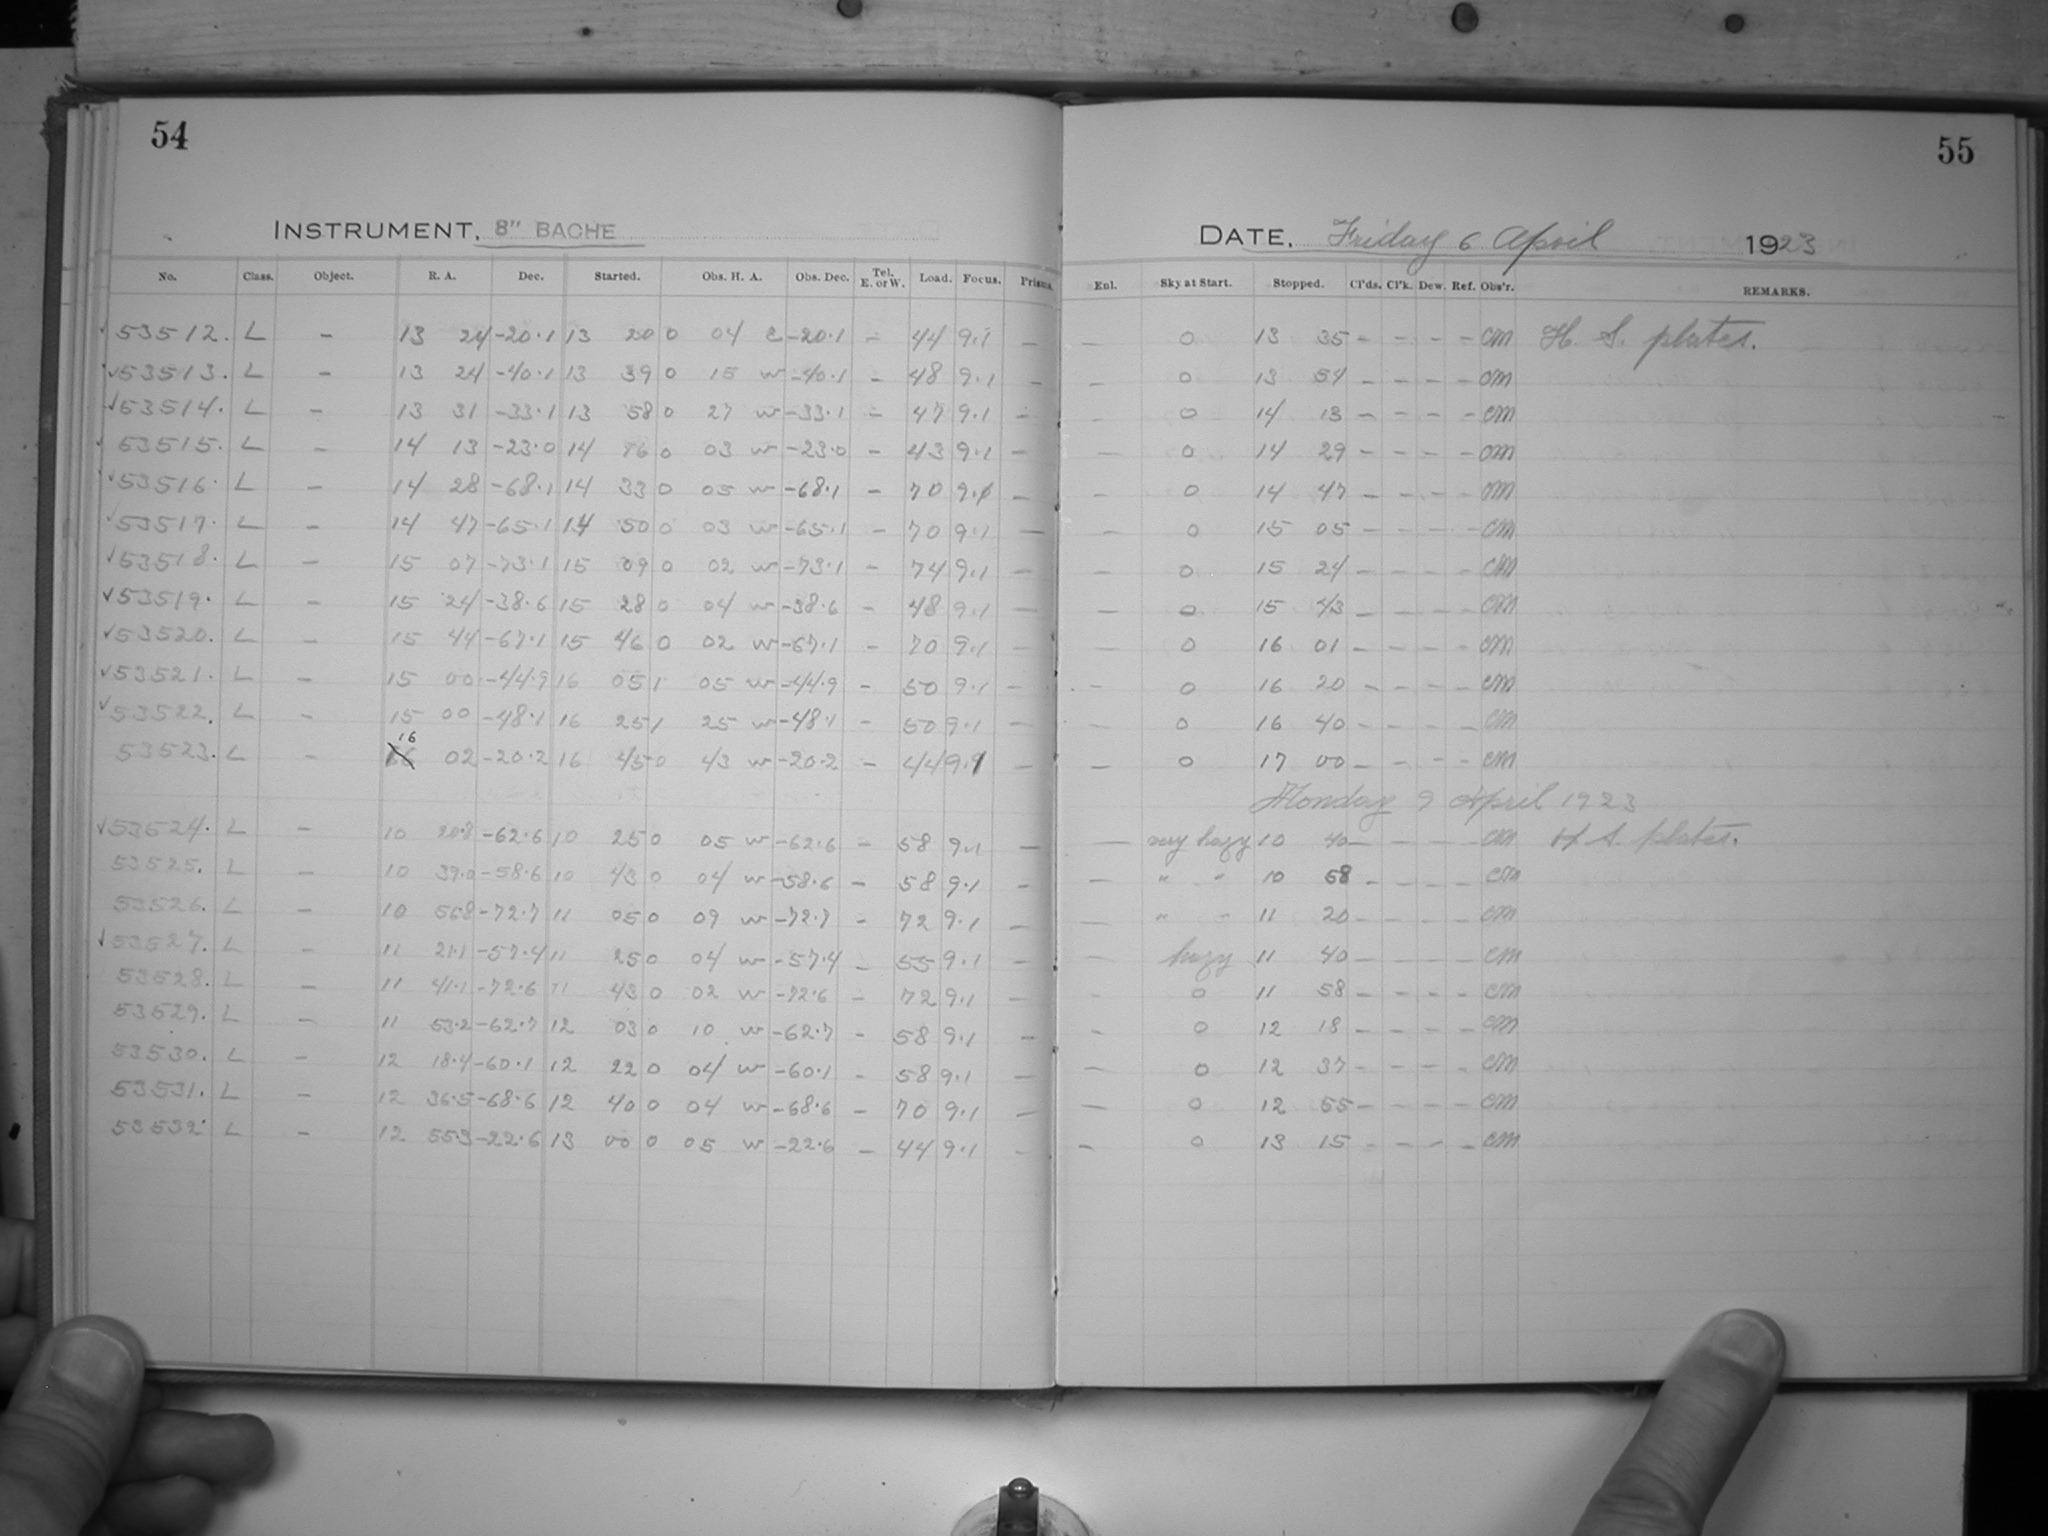 54
INSTRUMENT, 8" BACHE
No. Class. Object. R. A. Dec. Started. Obs. H. A. Obs. Dec. Tel. E. or W. Load. Focus. Prism.
✓ 53512. L – 13 24 -20.1 13 20 0 04 e -20.1 – 44 9.1 –
✓ 53513. L – 13 24 -40.1 13 39 0 15 w -40.1 – 48 9.1 –
✓ 53514. L – 13 31 -33.1 13 58 0 27 w -33.1 – 47 9.1 –
53515. L – 14 13 -23.0 14 16 0 03 w -23.0 – 43 9.1 –
✓ 53516. L – 14 28 -68.1 14 33 0 05 w -68.1 – 70 9.1 –
✓ 53517. L – 14 47 -65.1 14 50 0 03 w -65.1 – 70 9.1 –
✓ 53518. L – 15 07 -73.1 15 09 0 02 w -73.1 – 74 9.1 –
✓ 53519. L – 15 24 -38.6 15 28 0 04 w -38.6 – 48 9.1 –
✓ 53520. L – 15 44 -67.1 15 46 0 02 w -67.1 – 70 9.1 –
✓ 53521. L – 15 00 -44.9 16 05 1 05 w -44.9 – 50 9.1 –
✓ 53522. L – 15 00 -48.1 16 25 1 25 w -48.1 – 50 9.1 –
53523. L – 16 02 -20.2 16 45 0 43 w -20.2 – 44 9.1 –
✓ 53524. L – 10 20.8 -62.6 10 25 0 05 w -62.6 – 58 9.1 –
53525. L – 10 39.0 -58.6 10 43 0 04 w -58.6 – 58 9.1 –
53526. L – 10 56.8 -72.7 11 05 0 09 w -72.7 – 72 9.1 –
✓ 53527. L – 11 21.1 -57.4 11 25 0 04 w -57.4 – 55 9.1 –
53528. L – 11 41.1 -72.6 11 43 0 02 w -72.6 – 72 9.1 –
53529. L – 11 53.2 -62.7 12 03 0 10 w -62.7 – 58 9.1 –
53530. L – 12 18.4 -60.1 12 22 0 04 w -60.1 – 58 9.1 –
53531. L – 12 36.5 -68.6 12 40 0 04 w -68.6 – 70 9.1 –
53532. L – 12 55.3 -22.6 13 00 0 05 w -22.6 – 44 9.1 –
55
DATE, Friday 6 April 1923
Enl. Sky at Start. Stopped. Cl'ds. Cl'k. Dew. Ref. Obs'r. REMARKS.
– 0 13 35 – – – – cm H. S. plates.
– 0 13 54 – – – – cm
– 0 14 13 – – – – cm
– 0 14 29 – – – – cm
– 0 14 47 – – – – cm
– 0 15 05 – – – – cm
– 0 15 24 – – – – cm
– 0 15 43 – – – – cm
– 0 16 01 – – – – cm
– 0 16 20 – – – – cm
– 0 16 40 – – – – cm
– 0 17 00 – – – – cm
Monday 9 April 1923
– very hazy 10 40 – – – – cm H. S. plates.
– " " 10 58 – – – – cm
– " " 11 20 – – – – cm
– hazy 11 40 – – – – cm
– 0 11 58 – – – – cm
– 0 12 18 – – – – cm
– 0 12 37 – – – – cm
– 0 12 55 – – – – cm
– 0 13 15 – – – – cm